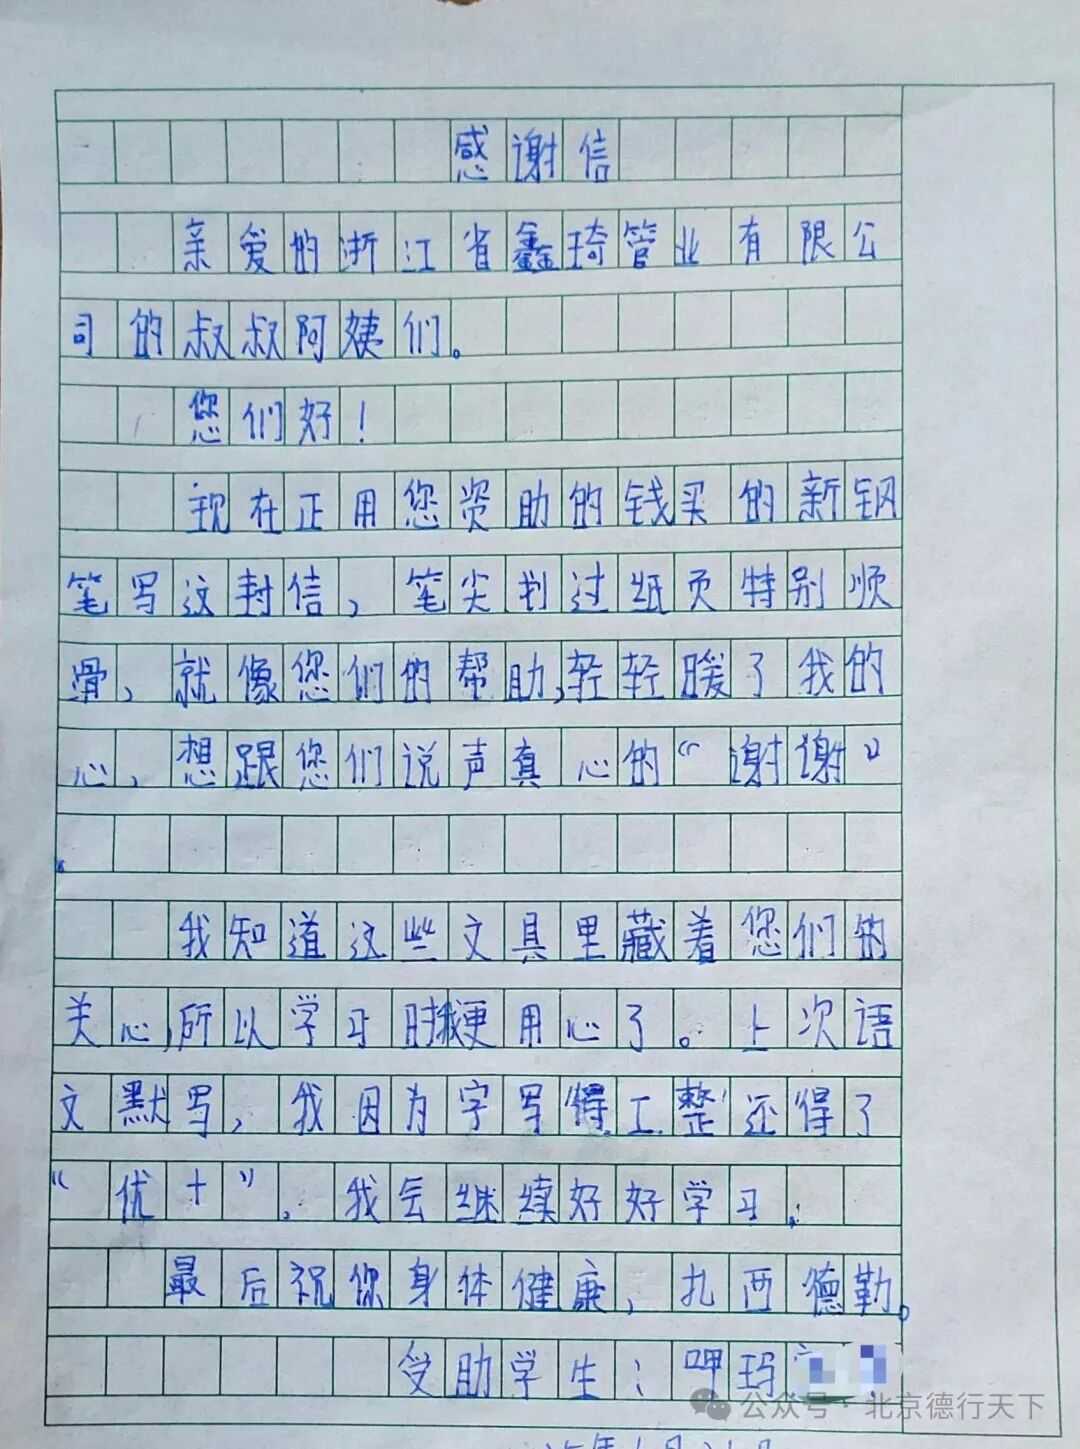 感谢信
亲爱的浙江省鑫琦管业有限公
司的叔叔阿姨们。
您们好！
现在正用您资助的钱买的新钢
笔写这封信，笔尖划过纸页特别顺
滑，就像您们的帮助，轻轻暖了我的
心，想跟您们说声真心的“谢谢”
。
我知道这些文具里藏着您们的
关心，所以学习时我更用心了。上次语
文默写，我因为字写得工整还得了
“优+”，我会继续好好学习。
最后祝您身体健康，扎西德勒。
受助学生：呷玛
公众号·北京德行天下